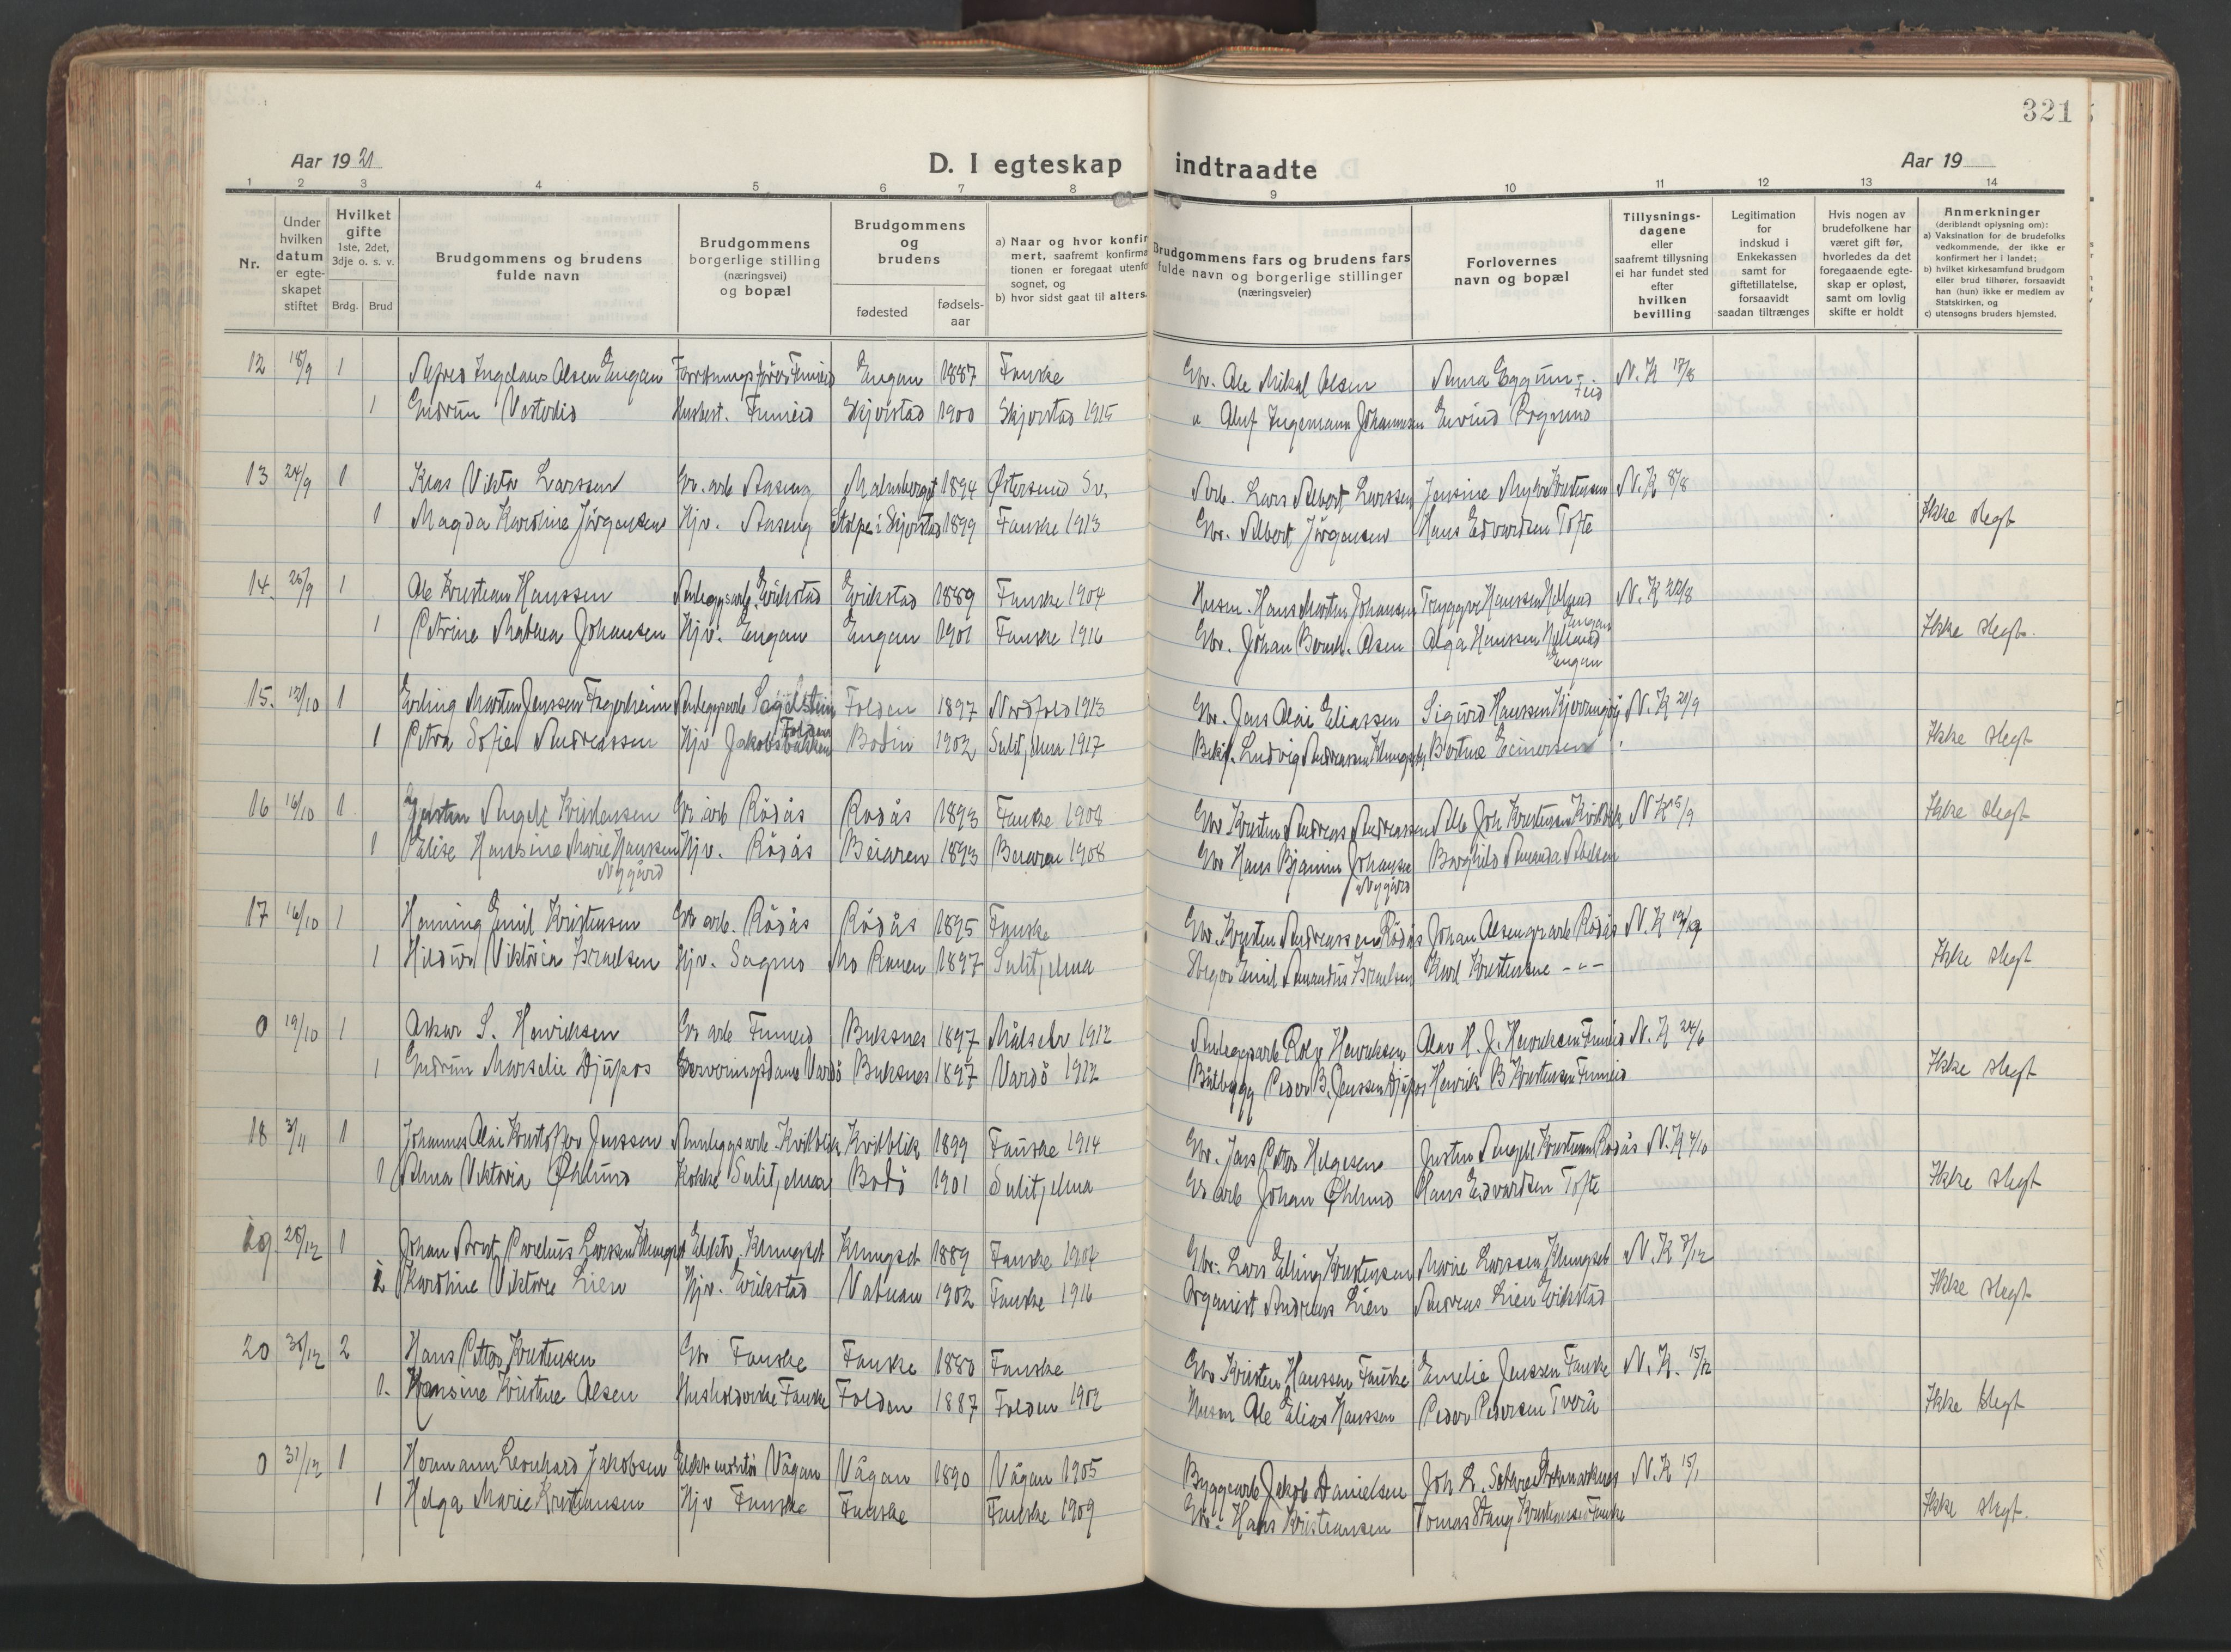 321
Aar 1921
D. I egteskap indtraadte
Aar 19
1 2 3 4 5 6 7 8 9 10 11 12 13 14
Nr.
Under hvilken datum er egteskapet stiftet
Hvilket gifte 1ste, 2det, 3dje o. s. v.
Brdg. Brud
Brudgommens og brudens fulde navn
Brudgommens borgerlige stilling (næringsvei) og bopæl
Brudgommens og brudens
fødested
fødsels-aar
a) Naar og hvor konfirmert, saafremt konfirmationen er foregaat utenfor sognet, og
b) hvor sidst gaat til alters.
Brudgommens fars og brudens fars fulde navn og borgerlige stillinger (næringsveier)
Forlovernes navn og bopæl
Tillysningsdagene eller saafremt tillysning ei har fundet sted efter hvilken bevilling
Legitimation for indskud i Enkekassen samt for giftetillatelse, forsaavidt saadan tiltrænges
Hvis nogen av brudefolkene har været gift før, hvorledes da det foregaaende egteskap er opløst, samt om lovlig skifte er holdt
Anmerkninger (deriblandt oplysning om):
a) Vaksination for de brudefolks vedkommende, der ikke er konfirmert her i landet;
b) hvilket kirkesamfund brudgom eller brud tilhører, forsaavidt han (hun) ikke er medlem av Statskirken, og
c) utensogns bruders hjemsted.
12 18/9 1 Alfred Ingelaus Olsen Engan Engan 1887 Fauske Gbr. Ole Mikal Olsen Anna N. K 17/8
1 Gudrun Vesterlid Finneid Skjerstad 1900 Skjerstad 1915 Oluf Ingemann Johannesen Eivind Rognmo
13 24/9 1 Klas Viktor Larssen Gr. arb Aaseng Malmberget 1894 Østersund Sv. Arb. Lars Albert Larssen Jensine N. K 8/8
1 Magda Karoline Jörgensen Hjv. Aaseng Stolpe i Skjerstad 1899 Fauske 1913 Gbr. Albert Jörgensen Hans Edvardsen Tofte Ikke slegt
14. 25/9 1 Ole Kristian Hanssen Anleggsarb. Erikstad Erikstad 1889 Fauske 1904 Husm. Hans Morten Johansen Tryggve Hanssen Engan N. K 22/8
1 Petrine Mathea Johansen Hjv. Engan Engan 1901 Fauske 1916 Gbr. Johan Olsen Olga Hanssen Engan Ikke slegt.
15. 12/10 1 Erling Morten Jenssen Fagerheim Anleggsarb Folden Folden 1897 Nordfold 1913 Gbr. Jens Olai Eliassen Sigurd Hanssen N. K 21/9
1 Petra Sofie Andreassen Hjv Jakobsbakken Bodin 1902 Sulitjelma 1917 Ludvig Andreassen Einersen Ikke slegt
16 16/10 1 Justin Angell Kristensen Gr arb Rödås Rödås 1893 Fauske 1908 Gbr Kristen Andreas Andreassen Joh Kristensen Kvitblik N K 15/9 Ikke slegt
1 Elise Hansine Marie Hanssen Nygård Hjv. Rödås Beiaren 1893 Beiaren 1908 Gbr Hans Bjamin Johansen Nygård Borghild Amanda Abelsen
17 16/10 1 Henning Emil Kristensen Gr arb. Rödås Rödås 1895 Fauske Gbr. Kristen Andreassen Rödås Johan Olsen gr arb Rödås N. K 19/9
1 Hildur Viktoria Israelsen Hjv. Sagmo Mo Ranen 1897 Sulitjelma Emil Amandus Israelsen Karl Kristensen - " - Ikke slegt
0 19/10 1 Oskar S. Henriksen Gr arb Finneid Buksnes 1897 Målselv 1912 Anleggsarb Rolv Henriksen Olav H. J. Henriksen Finneid N. K 24/6
1 Gudrun Marselie Djupos Vardö Buksnes 1897 Vardö 1912 Peder B. Jenssen Djupos Henrik B Kristensen Finneid Ikke slegt
18 3/11 1 Johannes Olai Kristoffer Jenssen Anleggsarb. Kvitblik Kvitblik 1899 Fauske 1914 Gbr. Jens Petter Helgesen Justin Angell Kristensen Rödås N. K 4/10
1 Alma Viktoria Øhlund Kokke Sulitjelma Bodö 1901 Sulitjelma Gr arb Johan Øhlund Hans Edvardsen Tofte Ikke slegt
19. 28/12 1 Johan Arnt Parelius Larssen Klungset Elektr. Klungset Klungset 1889 Fauske 1904 Gbr. Lars Elling Kristensen Marie Larssen Klungset N. K 7/12
1 Karoline Viktorie Lien Hjv. Erikstad Vatnan 1902 Fauske 1916 Organist Andreas Lien Andreas Lien Erikstad Ikke slegt
20 30/12 2 Hans Petter Kristensen Gbr Fauske Fauske 1880 Fauske Gbr Kristen Hanssen Fauske Emelie Jenssen Fauske N. K. 15/12
1. Hansine Kristine Olsen Husholderske Fauske Folden 1887 Folden 1902 Husm Ole Elias Hanssen Peder Pedersen Tverå Ikke slegt
0 31/12 1 Hermann Leonhard Jakobsen Elektr montör Vågan Vågan 1890 Vågan 1905 Byggearb Jakob Danielsen Joh L. N. K 15/1
1 Helga Marie Kristiansen Hjv Fauske Fauske Fauske 1909 Gbr. Hans Kristiansen Tomas Stang Kristiansen Fauske Ikke slegt.